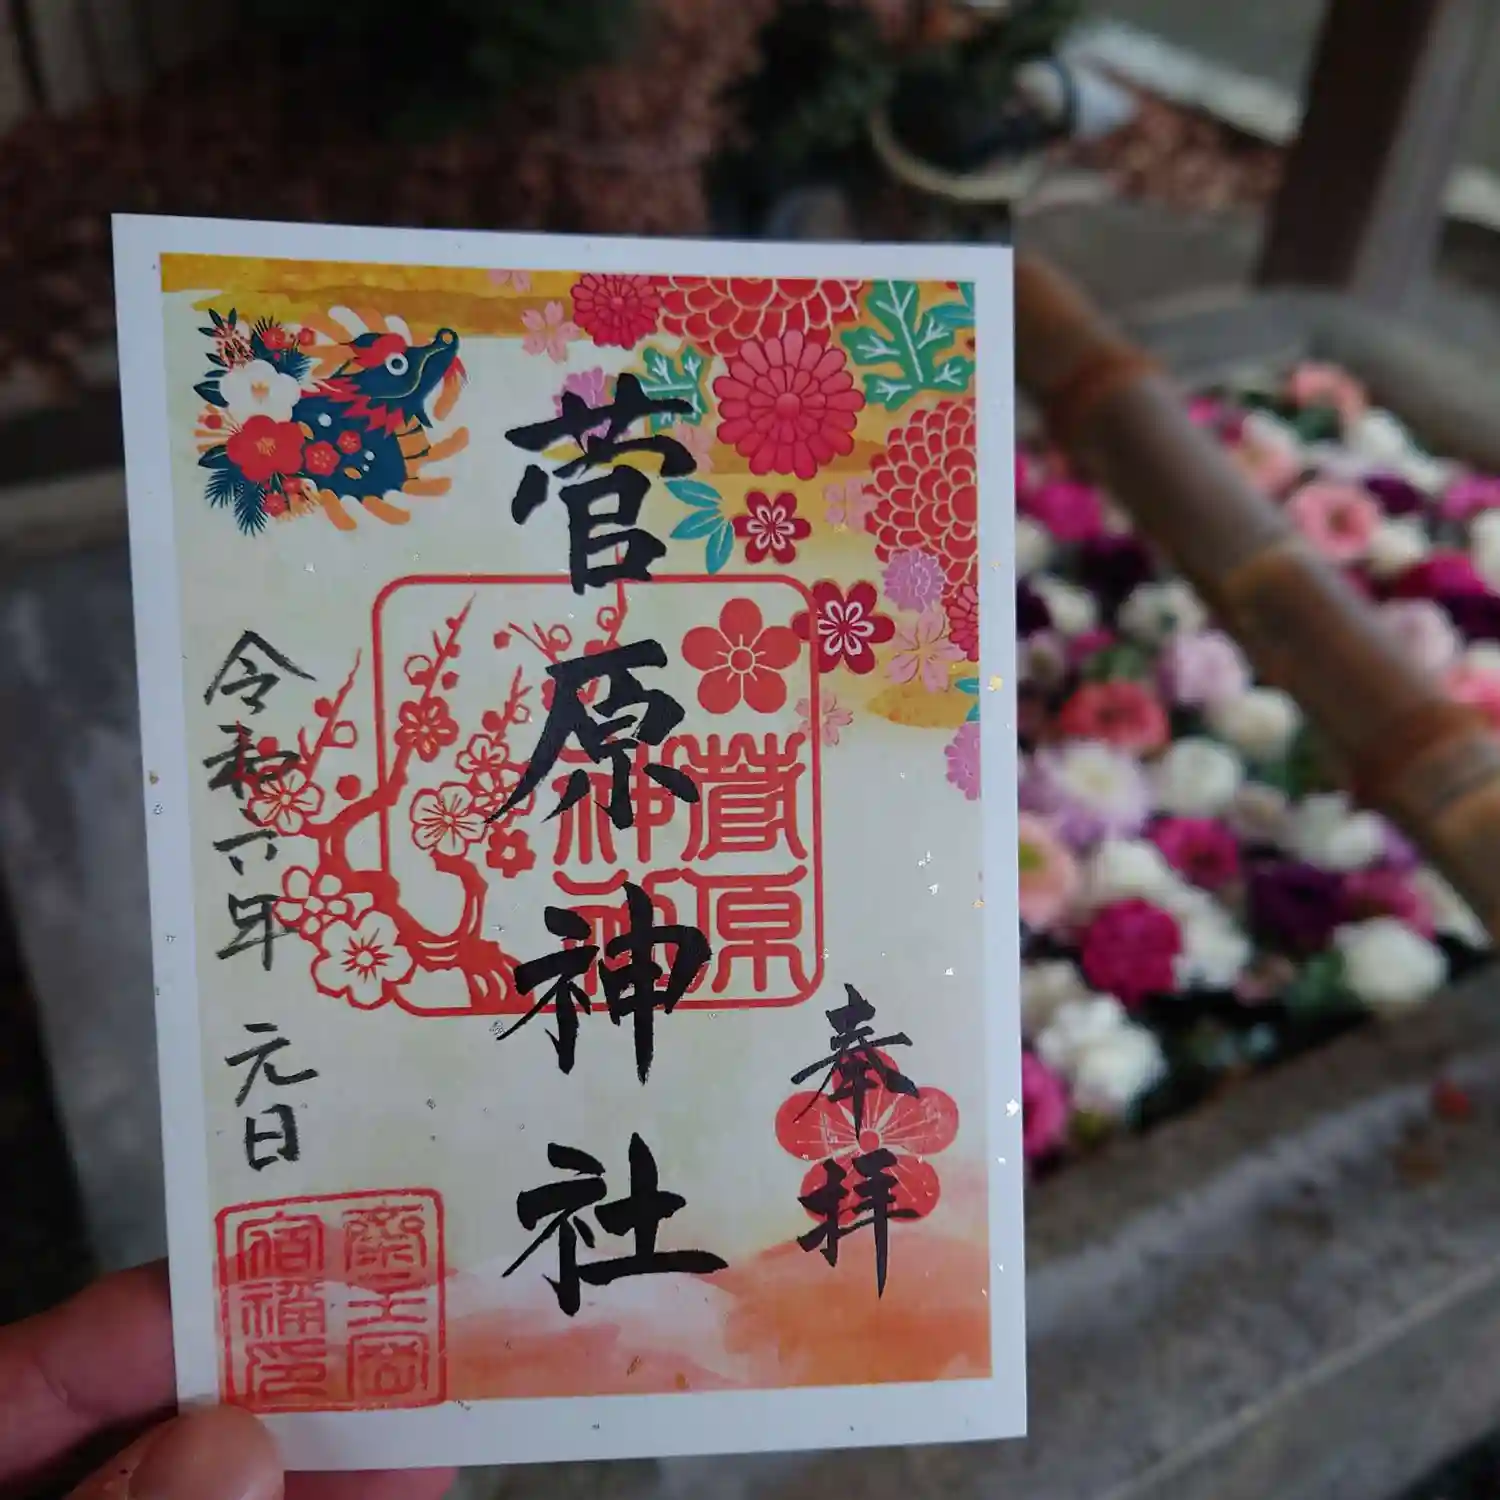 奉拝
菅原神社
菅原
神社
令和六年 元日